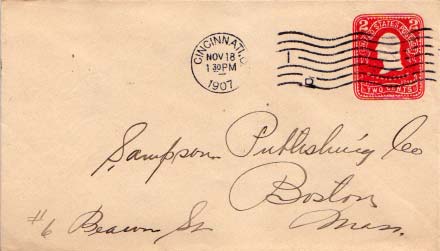 CINCINNATI, O.
NOV 18
1 30 PM
1907
2 UNITED STATES POSTAGE 2
TWO CENTS
Sampson Publishing Co
Boston
Mass.
#6 Beacon St